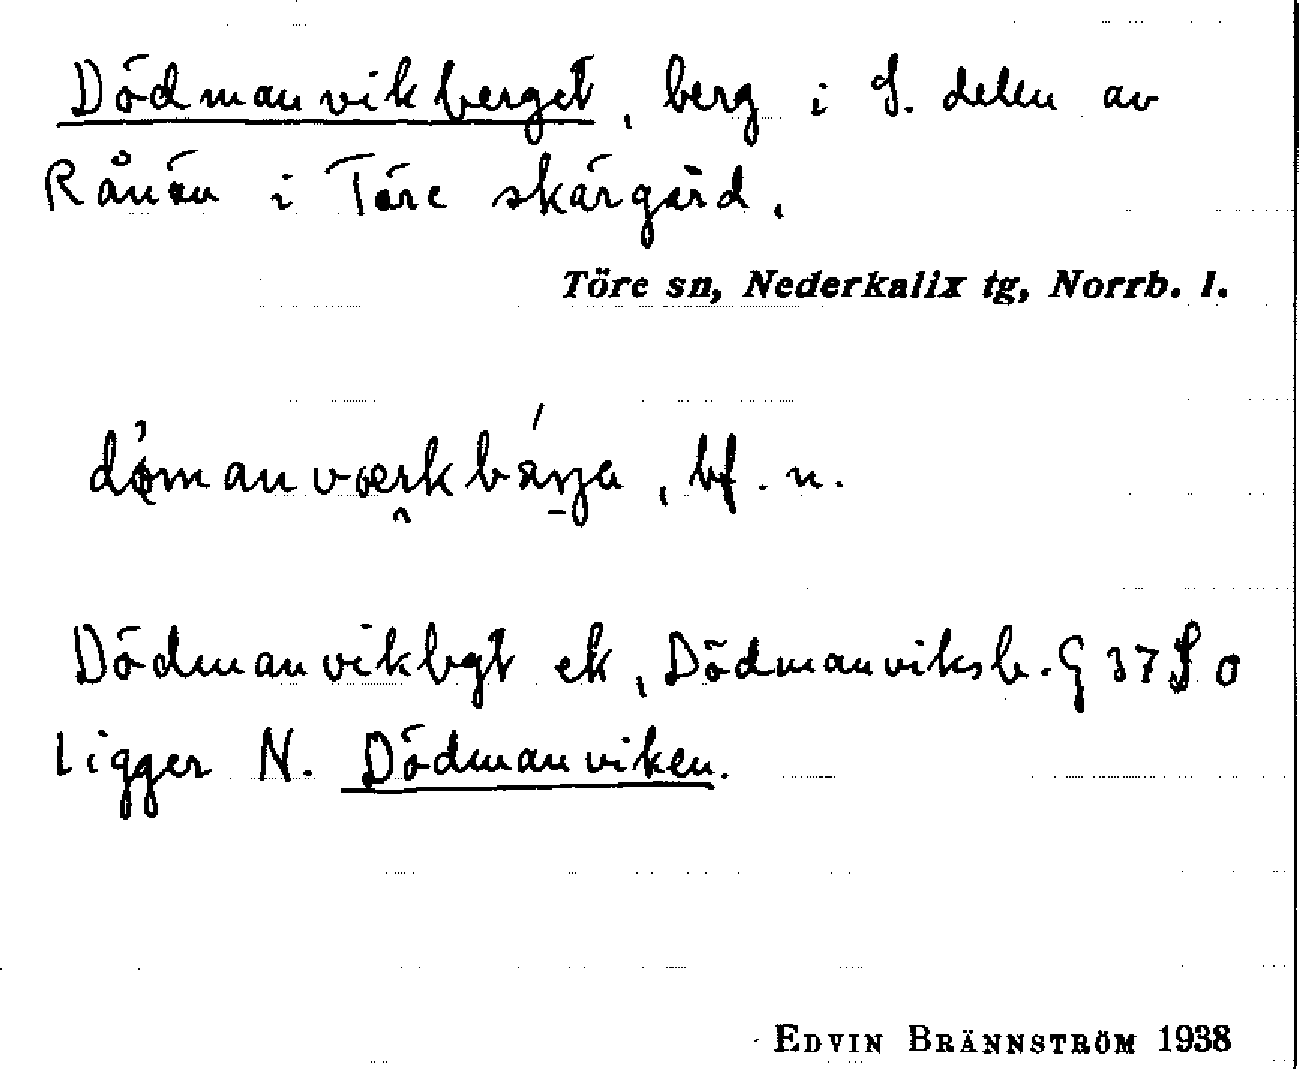 Dödmanvikberget, berg i S. delen av
Rånön i Töre skärgård.
Töre sn, Nederkalix tg, Norrb. l.
bf. n.
Dödmanvikbgt ek, Dödmanviksb. G 37 S o
Ligger N. Dödmanviken.
EDVIN BRÄNNSTRÖM 1938